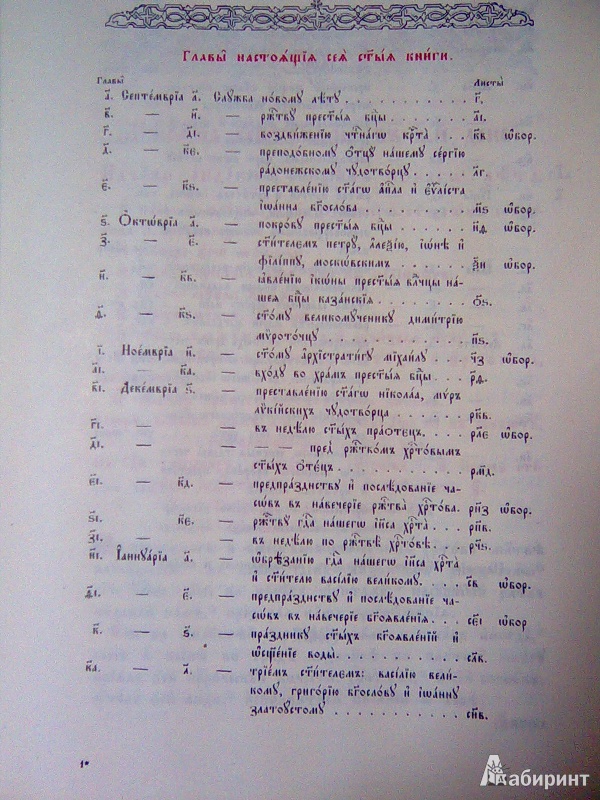 Главы̀ настоѧ́щїѧ сеѧ̀ ст҃ы́ѧ кни́ги.
Главы̀ Листы̀
а҃. Септе́мврїа а҃. Слꙋжба но́вомꙋ лѣ́тꙋ . . . г҃.
в҃. — и҃. — рж҃твꙋ̀ прест҃ы́ѧ бц҃ы . . . а҃і.
г҃. — д҃і. — воздви́женїю чт҃на́гѡ крⷭ҇та̀ . . . к҃в ѡ҆бор.
д҃. — к҃е. — преподо́бномꙋ ѻ҆тцꙋ̀ на́шемꙋ се́ргїю
ра́донежскомꙋ чꙋдотво́рцꙋ . . . л҃г.
є҃. — к҃ѕ. — преставле́нїю ст҃а́гѡ а҆пⷭ҇ла и҆ є҆ѵⷢ҇лі́ста
і҆ѡа́нна бг҃осло́ва . . . м҃ѕ ѡ҆бор.
ѕ҃. Ѻ҆ктѡ́врїа а҃. — покро́вꙋ прест҃ы́ѧ бц҃ы . . . н҃д ѡ҆бор.
з҃. — є҃. — ст҃и́телємъ петрꙋ̀, а҆леѯі́ю, і҆ѡ́нѣ и҆
фїлі́ппꙋ, моско́вскимъ . . . ѯ҃и ѡ҆бор.
и҃. — к҃в. — ꙗ҆вле́нїю і҆кѡ́ны прест҃ы́ѧ влⷣчцы на́-
шеѧ бц҃ы каза́нскїѧ . . . ѻ҃ѕ.
ѳ҃. — к҃ѕ. — ст҃о́мꙋ великомꙋ́ченикꙋ дими́трїю
мѷрото́чцꙋ . . . п҃ѕ.
і҃. Ное́мврїа и҃. — ст҃о́мꙋ а҆рхїстрати́гꙋ мїхаи́лꙋ . . . ч҃з ѡ҆бор.
а҃і. — к҃а. — вхо́дꙋ во хра́мъ прест҃ы́ѧ бц҃ы . . .
в҃і. Деке́мврїа ѕ҃. — преставле́нїю ст҃а́гѡ нїкола́а, мѵ́ръ
лѷкі́йскихъ чꙋдотво́рца . . . рк҃в.
г҃і. — въ недѣ́лю ст҃ы́хъ пра́ѻтєцъ . . . рл҃є ѡ҆бор.
д҃і. — — — пред̾ рж҃тво́мъ хрⷭ҇то́вымъ
ст҃ы́хъ ѻ҆тє́цъ . . . рм҃д.
є҃і. — к҃д. — предпра́зднствꙋ и҆ послѣ́дованїе ча-
сѡ́въ въ наве́черїе рж҃тва̀ хрⷭ҇то́ва. . . рн҃з ѡ҆бор.
ѕ҃і. — к҃є. — рж҃твꙋ̀ гдⷭ҇а на́шегѡ і҆и҃са хрⷭ҇та̀ . . . рп҃в.
з҃і. — въ недѣ́лю по рж҃твѣ̀ хрⷭ҇то́вѣ. . . рч҃ѕ.
и҃і. І҆аннꙋа́рїа а҃. — ѡ҆брѣ́занїю гдⷭ҇а на́шегѡ і҆и҃са хрⷭ҇та̀
и҆ ст҃и́телю васі́лїю вели́комꙋ. . . с҃в ѡ҆бор.
ѳ҃і. — є҃. — предпра́зднствꙋ и҆ послѣ́дованїе ча-
сѡ́въ въ наве́черїе бг҃оѧвле́нїѧ. . . се҃і ѡ҆бор
к҃. — ѕ҃. — пра́здникꙋ ст҃ы́хъ бг҃оѧвле́нїй и҆
ѡ҆сщ҃е́нїе воды̀. . . сл҃в.
к҃а. — л҃. — трїє́мъ ст҃и́телємъ: васі́лїю вели́-
комꙋ, григо́рїю бг҃осло́вꙋ и҆ і҆ѡа́ннꙋ
златоꙋ́стомꙋ . . . сн҃в.
1*
Лабиринт